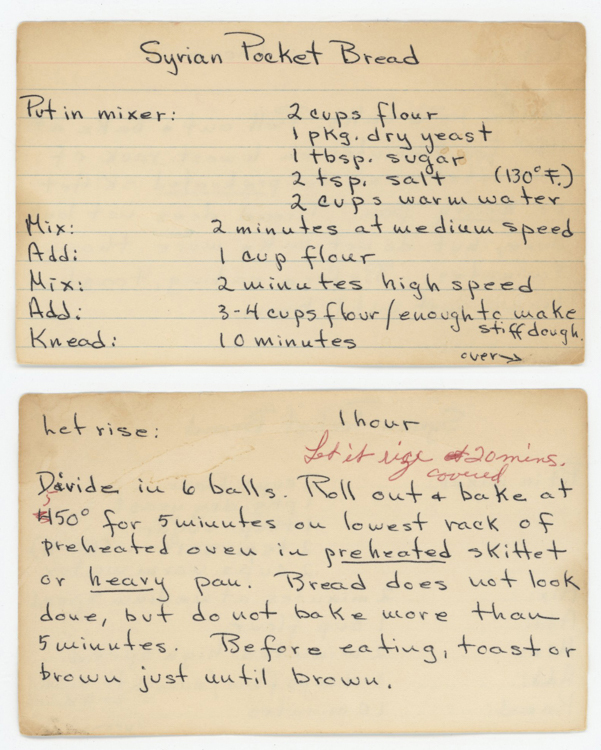 Syrian Pocket Bread
Put in mixer: 2 cups flour
1 pkg. dry yeast
1 tbsp. sugar
2 tsp. salt (130° F.)
2 cups warm water
Mix: 2 minutes at medium speed
Add: 1 cup flour
Mix: 2 minutes high speed
Add: 3-4 cups flour/enough to make
stiff dough.
Knead: 10 minutes
over→
Let rise: 1 hour
Let it rise 20 mins.
covered
Divide in 6 balls. Roll out & bake at
550° for 5 minutes on lowest rack of
preheated oven in preheated skillet
or heavy pan. Bread does not look
done, but do not bake more than
5 minutes. Before eating, toast or
brown just until brown.